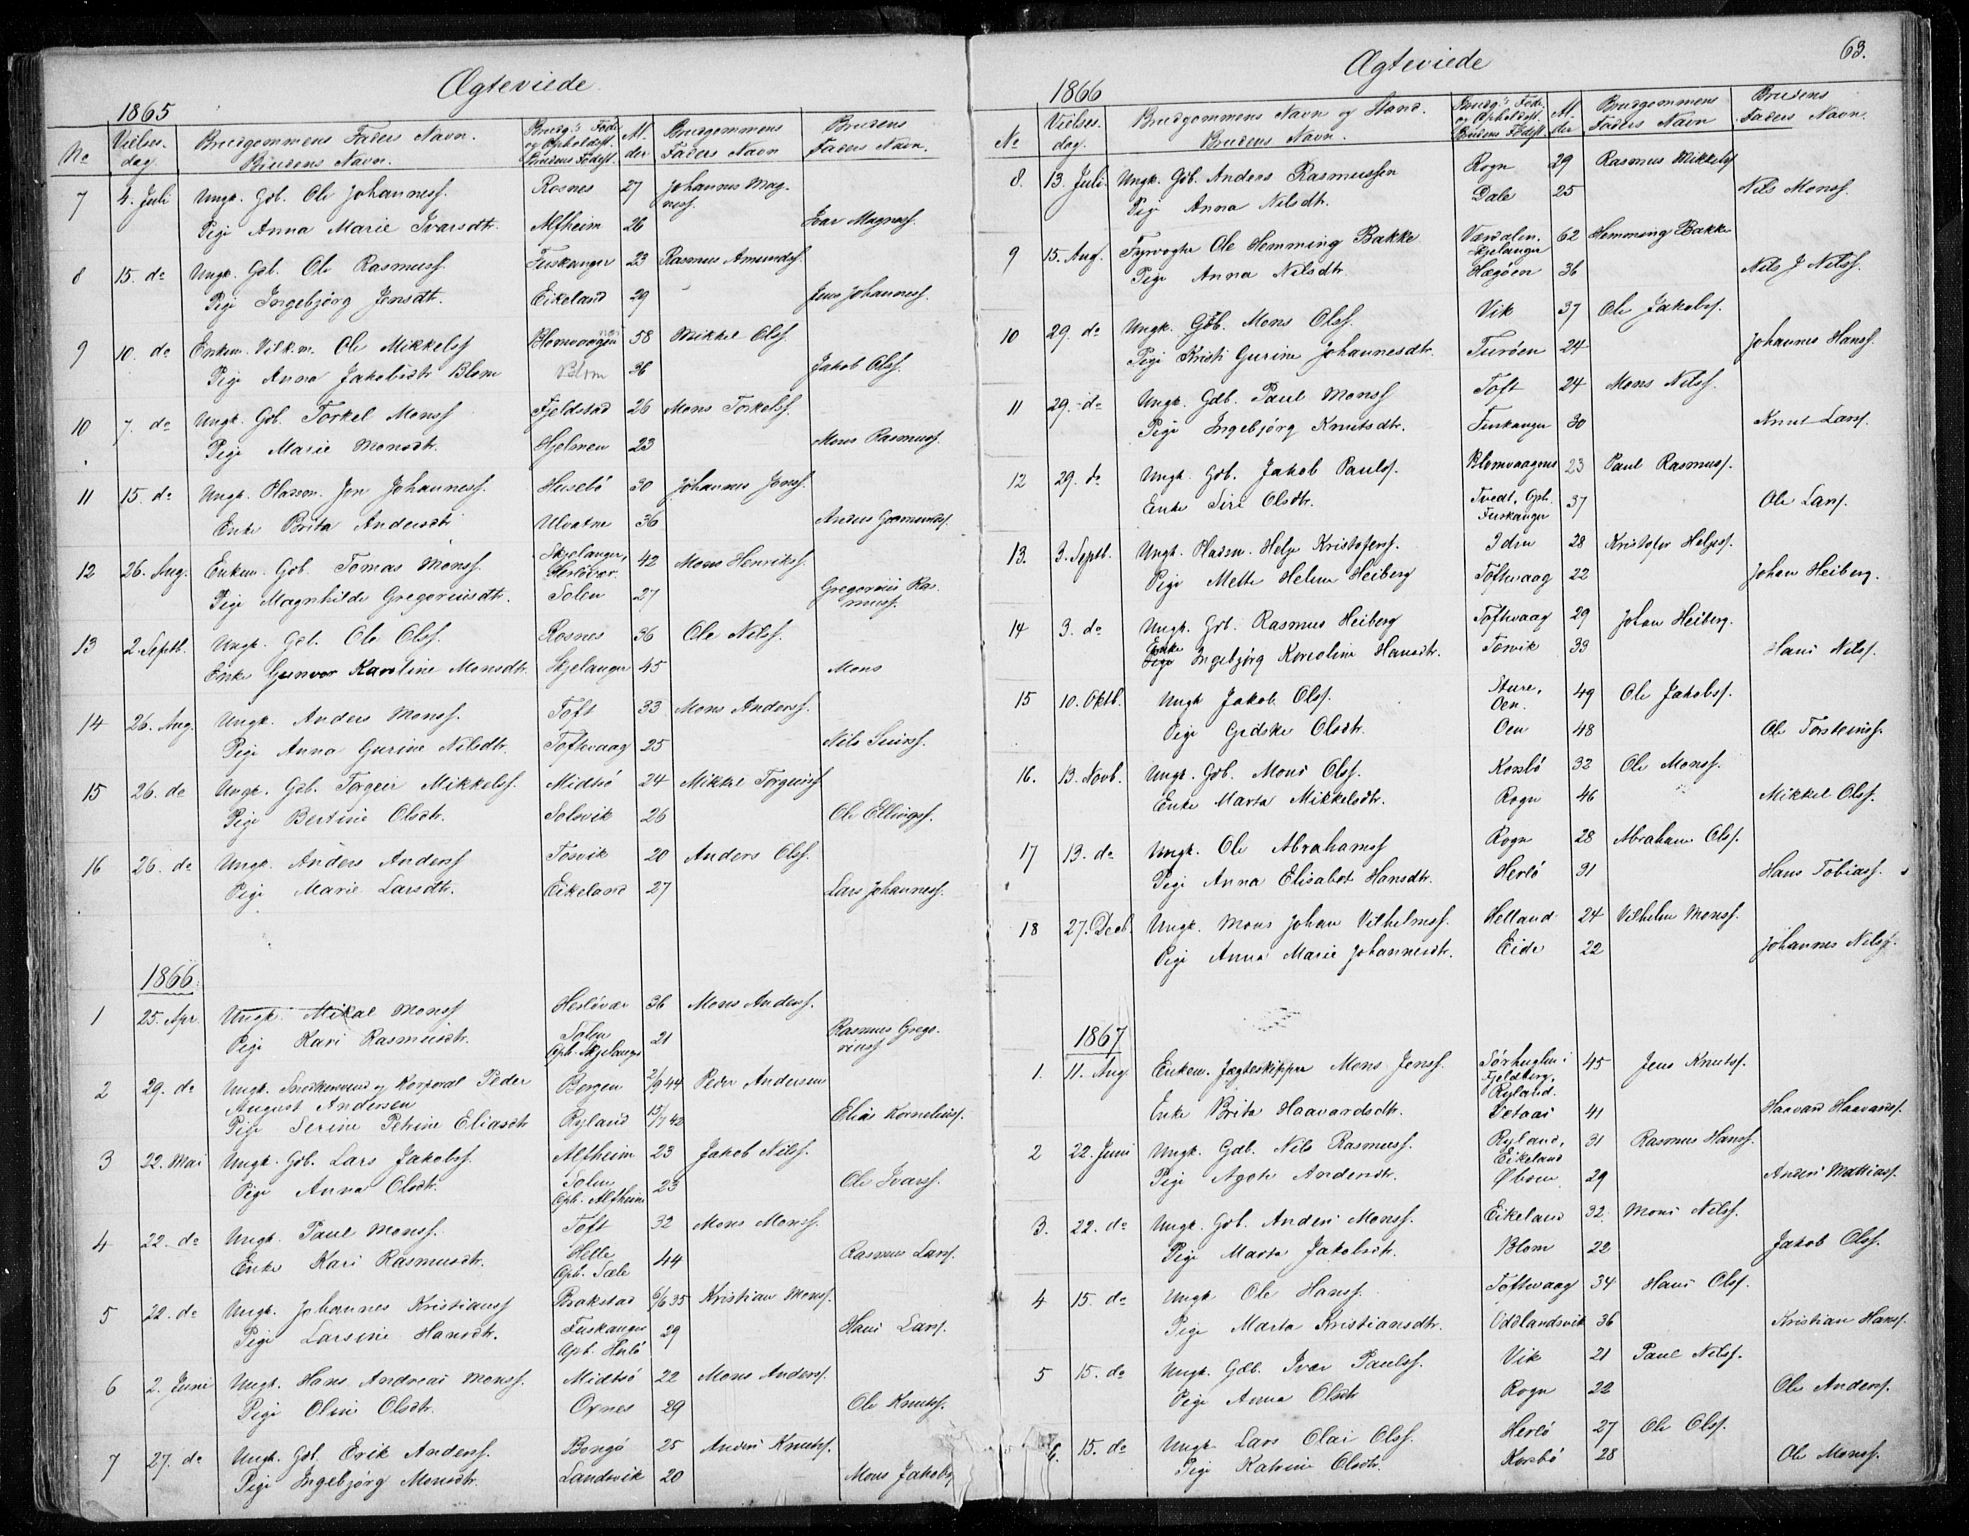 Ægteviede
1865
No Vielses dag. Brudgommens Faders Navn. Brudens Navn. Brudg.s Føde og Opholdsst. Brudens Fødest. Alder Brudgommens Faders Navn Brudens Faders Navn.
7 4. Juli Ungk. Gdb. Ole Johannesf. Rosnes 27 Johannes Magnesf.
Pige Anna Marie Ivarsdtr. Alfheim 26 Ivar Magnesf.
8 15. do Ungk. Gdb. Ole Rasmusf. Fuskanger 23 Rasmus Amundsf.
Pige Ingebjørg Jensdtr. Eikeland 29 Jens Johannesf.
9 10. do Enkem. Ole Mikkelsf Blomvaagen 58 Mikkel Olsf.
Pige Anna Jakobsdtr Blom Blom 36 Jakob Olsf.
10 7. do Ungk. Gdb. Torkel Monsf Fjeldstad 26 Mons Torkelsf.
Pige Marie Monsdtr. Hjelmen 23 Mons Rasmusf.
11 15. do Ungk. Plassm. Jon Johannesf. Husebø 30 Johannes Jonsf.
Enke Brita Andersdtr Ulvatne 36 Anders
12 26. Aug. Enkem. Gdb. Tomas Monsf. Skjelanger, Herløvær. 42 Mons Henriksf.
Pige Magnhilde Gregoriusdtr. Solen 27 Gregorius Rasmusf.
13 2. Septb. Ungk. Gdb. Ole Olsf. Rosnes 36 Ole Nilsf.
Enke Gunvor Karoline Monsdtr. Skjelanger 45 Mons
14 26. Aug. Ungk. Anders Monsf. Toft 33 Mons Andersf.
Pige Anna Gurine Nilsdtr. Toftevaag 25 Nils
15 26. do Ungk. Gdb. Torgeir Mikkelsf. Midtsø 24 Mikkel Torgeirsf
Pige Bertine Olsdtr. Solsvik 26 Ole Ellingsf.
16 26. do Ungk. Anders Andersf Tosvik 20 Anders Olsf.
Pige Marie Larsdtr. Eikeland 27 Lars Johannesf.
1866.
1 25. Apr. Ungk. Mikal Monsf Herløvær 36 Mons Andersf.
Pige Kari Rasmusdtr. Solen Oph. Skjelanger 21 Rasmus Gregoriusf
2 29. do Ungk. Snedkersvend og Korporal Peder August Andersen Borgen 2/9 44 Peder Andersen
Pige Serine Petrine Eliasdtr Ryland 15/7 42 Elias Korneliusf.
3 22. Mai Ungk. Gdb. Lars Jakobsf. Alfheim 23 Jakob Nilsf.
Pige Anna Olsdtr. Solen Oph. Alfheim 23 Ole Ivarsf.
4 22. do Ungk. Paul Monsf. Toft 32 Mons Monsf.
Enke Kari Rasmusdtr. Helle Oph. Sæle 44 Rasmus Larsf.
5 22. do Ungk. Johannes Kristiansf Brakstad 6/6 35 Kristian Monsf.
Pige Larsine Hansdtr. Fuskanger Oph. Herlø 29 Hans Larsf.
6 2. Juni Ungk. Hans Andreas Monsf. Midtsø 22 Mons Andersf.
Pige Oline Olsdtr. Oxnes 29 Ole Knutsf.
7 27. do Ungk. Gdb. Erik Andersf. Bongø 25 Anders Knutsf.
Pige Ingebjørg Monsdtr. Landsvik 20 Mons Jakobsf
63.
Ægteviede
1866
No Vielses dag. Brudgommens Navn og Stand. Brudens Navn. Brudg.s Føde og Opholdsst. Brudens Fødest. Alder Brudgommens Faders Navn Brudens Faders Navn.
8. 13. Juli. Ungk. Gdb. Anders Rasmussen Rogn 29 Rasmus Mikkelsf
Pige Anna Nilsdtr. Dale 25 Nils Monsf.
9 15. Aug. Fyrvogter Ole Hemming Bakke Værdalen, Skjelanger 62 Hemming Bakke
Pige Anna Nilsdtr. Hægøen 36 Nils J Nilsf.
10 29. do Ungk. Gdb. Mons Olsf. Vik 37 Ole Jakobsf.
Pige Kristi Gurine Johannesdtr. Turøen 24 Johannes Hansf.
11 29. do Ungk. Gdb. Paul Monsf Toft 24 Mons Nilsf.
Pige Ingebjørg Knutsdtr. Fuskanger 30 Knut Larsf.
12 29. do Ungk. Gdb. Jakob Paulsf. Blomvaagnes 23 Paul Rasmusf.
Enke Siri Olsdtr. Tvedt, Oph. Fuskanger 37 Ole Larsf.
13. 3. Septb. Ungk. Plassm. Helge Kristofersf. Idsu 28 Kristofer Helgesf.
Pige Mette Helene Heiberg Toftevaag 22 Johan Heiberg.
14 3. do Ungk. Gdb. Rasmus Heiberg Toftevaag 29 Johan Heiberg.
Enke Pige Ingebjørg Karoline Hansdtr. Tosvik 33 Hans Nilsf.
15 10. Oktb. Ungk Jakob Olsf. Sture, Oen. 49 Ole Jakobsf.
Pige Gidske Olsdtr. Oen 48 Ole Torsteinsf.
16. 13. Novb. Ungk. Gdb. Mons Olsf. Korsbø 32 Ole Monsf.
Enke Marta Mikkelsdtr. Rogn 46 Mikkel Olsf.
17 13. do Ungk. Ole Abrahamsf Rogn 28 Abraham Olsf.
Pige Anna Elisabet Hansdtr. Herlø 31 Hans Tobiasf.
18 27. Decb. Ungk. Mons Johan Vilhelmsf. Helland 24 Vilhelm Monsf.
Pige Anna Marie Johannesdtr. Eide 22 Johannes Nilsf.
1867
1. 11. Aug. Enkem. Jægteskipper Mons Jensf. Fjeldberg, Ryland. 45 Jens Knutsf.
Enke Brita Haavardsdtr. 41 Haavard Haavardsf.
2 22. Juni Ungk. Gdb. Nils Rasmusf. Ryland, Eikeland 31 Rasmus Hansf.
Pige Agote Andersdtr. 29 Anders Mattiasf.
3. 22. do Ungk. Gdb. Anders Monsf. Eikeland 32. Mons Nilsf.
Pige Marta Jakobsdtr. Blom 22 Jakob Olsf.
4 15. do Ungk Ole Hansf. Toftevaag 34 Hans Olsf.
Pige Marta Kristiansdtr. Oddlandsvik 36 Kristian Hansf.
5 15. do Ungk. Gdb. Ivar Paulsf. Vik 21 Paul Nilsf.
Pige Anna Olsdtr Rogn 22 Ole Andersf.
6. 15. do Ungk. Lars Olai Olsf. Herlø 27 Ole Olsf.
Pige Katrine Olsdtr. Korsbø 28 Ole Monsf.